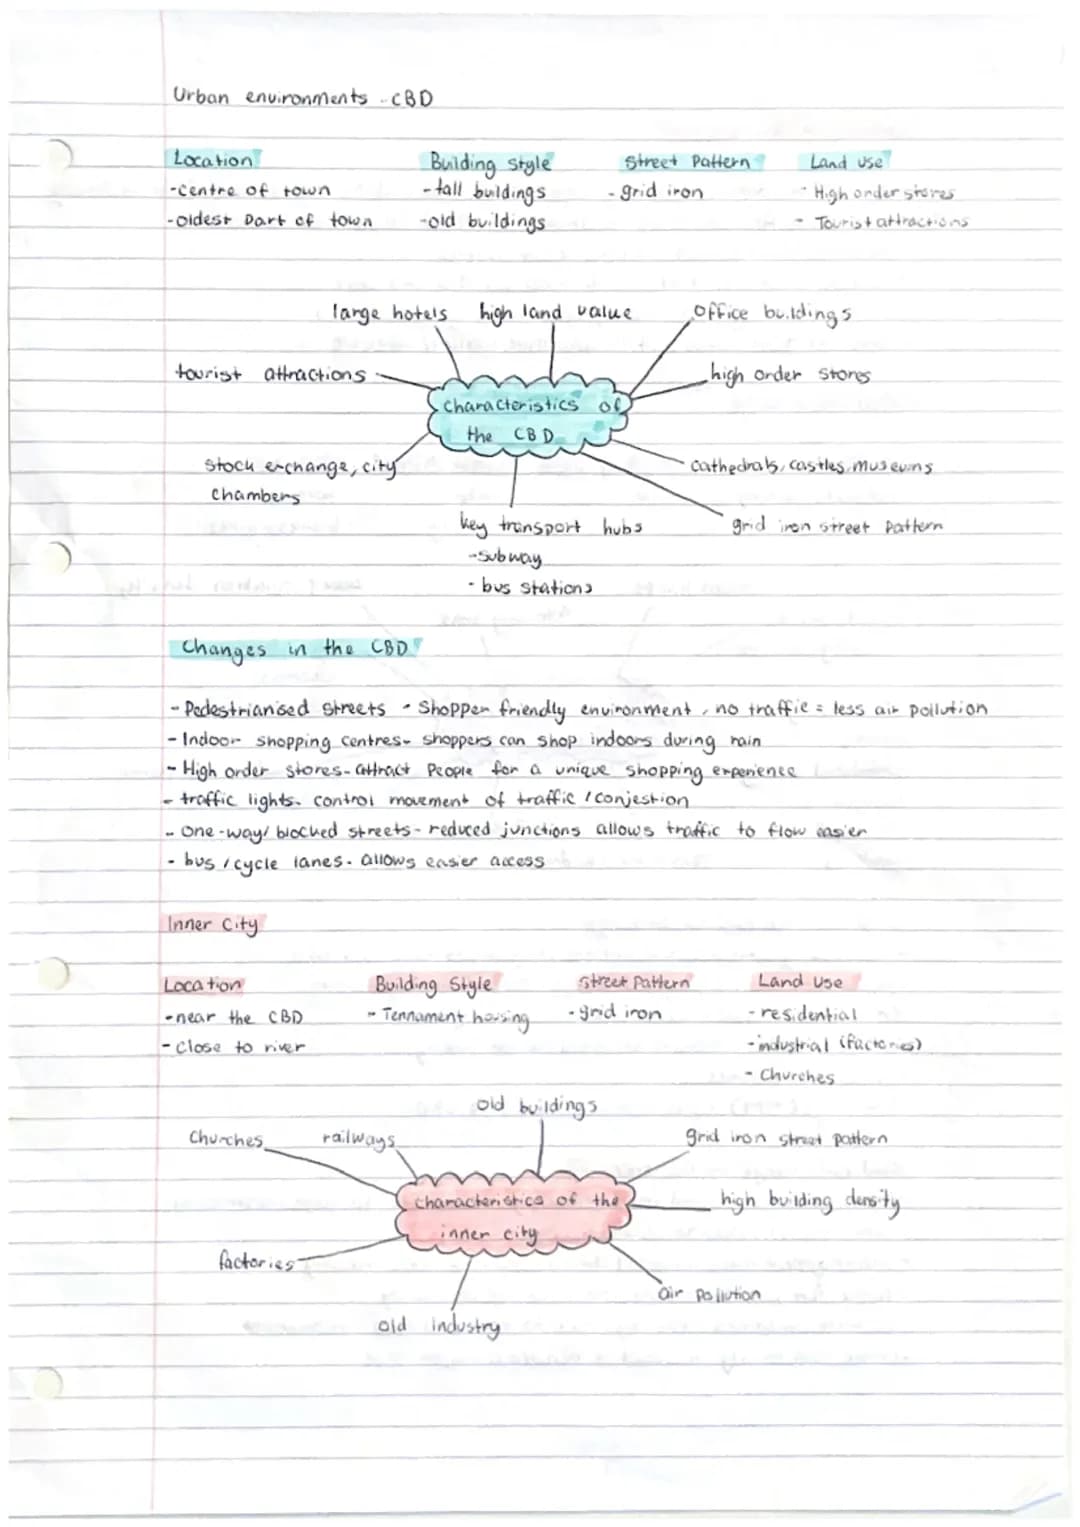 Urban environments - CBD
Location Building style Street Pattern Land use
-centre of town -tall buildings -grid iron - High order stores
-oldest part of town -old buildings - Tourist attractions
large hotels high land value Office buildings
tourist attractions high order stores
Characteristics of
the CBD
Stock exchange, city
Chambers
Cathedrals, castles, museums
key transport hubs grid iron street pattern
-subway
- bus stations
Changes in the CBD
- Pedestrianised streets - Shopper friendly environment, no traffic = less air pollution
- Indoor shopping centres- shoppers can shop indoors during rain
- High order stores- attract People for a unique shopping experience
- traffic lights- control movement of traffic / conjestion
- One-way/ blocked streets- reduced junctions allows traffic to flow easier
- bus / cycle lanes- allows easier access
Inner City
Location Building Style Street Pattern Land Use
-near the CBD - Tennament housing -grid iron - residential
- Close to river -industrial (factories)
- Churches
old buildings
Churches railways grid iron street pattern
characteristics of the
inner city
high building density
factories
air pollution
old industry